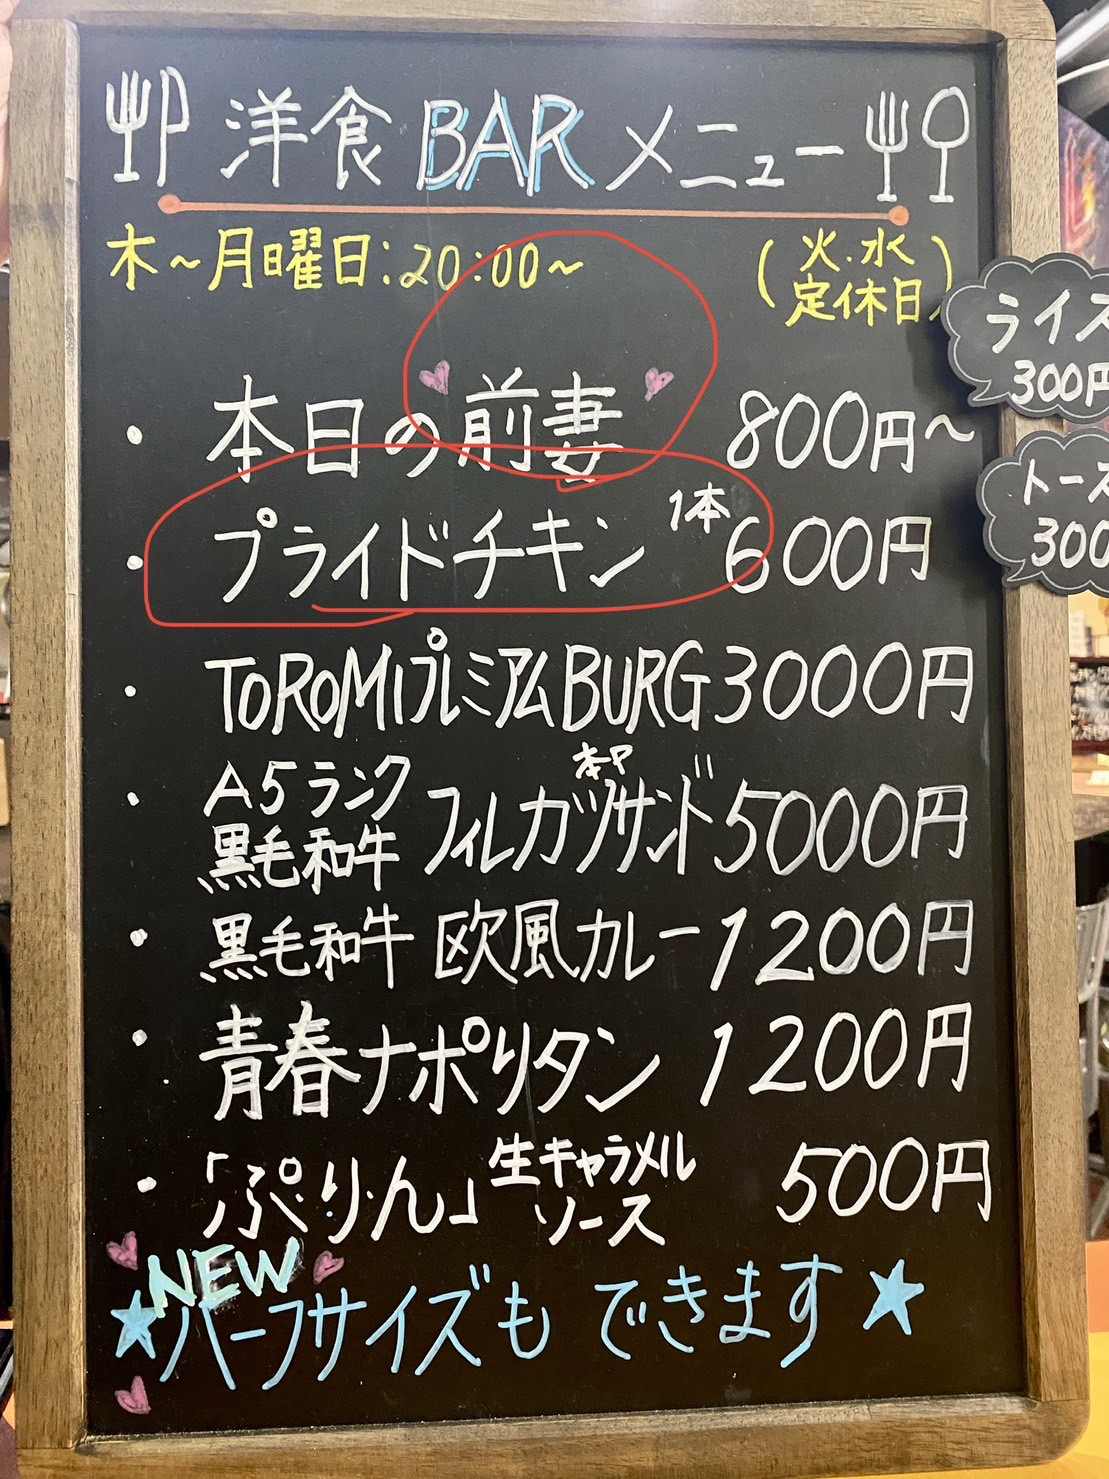 洋食BARメニュー
木～月曜日:20:00～
(火.水
定休日)
・本日の前妻 800円～
・プライドチキン 1本 600円
・TOROMIプレミアムBURG 3000円
・A5ランク
黒毛和牛 フィレガヅサンド 5000円
・黒毛和牛 欧風カレー 1200円
・青春ナポリタン 1200円
・「ぷ.り.ん」生キャラメル
ソース 500円
NEW
★ハーフサイズもできます★
ライス
300円
トース
300